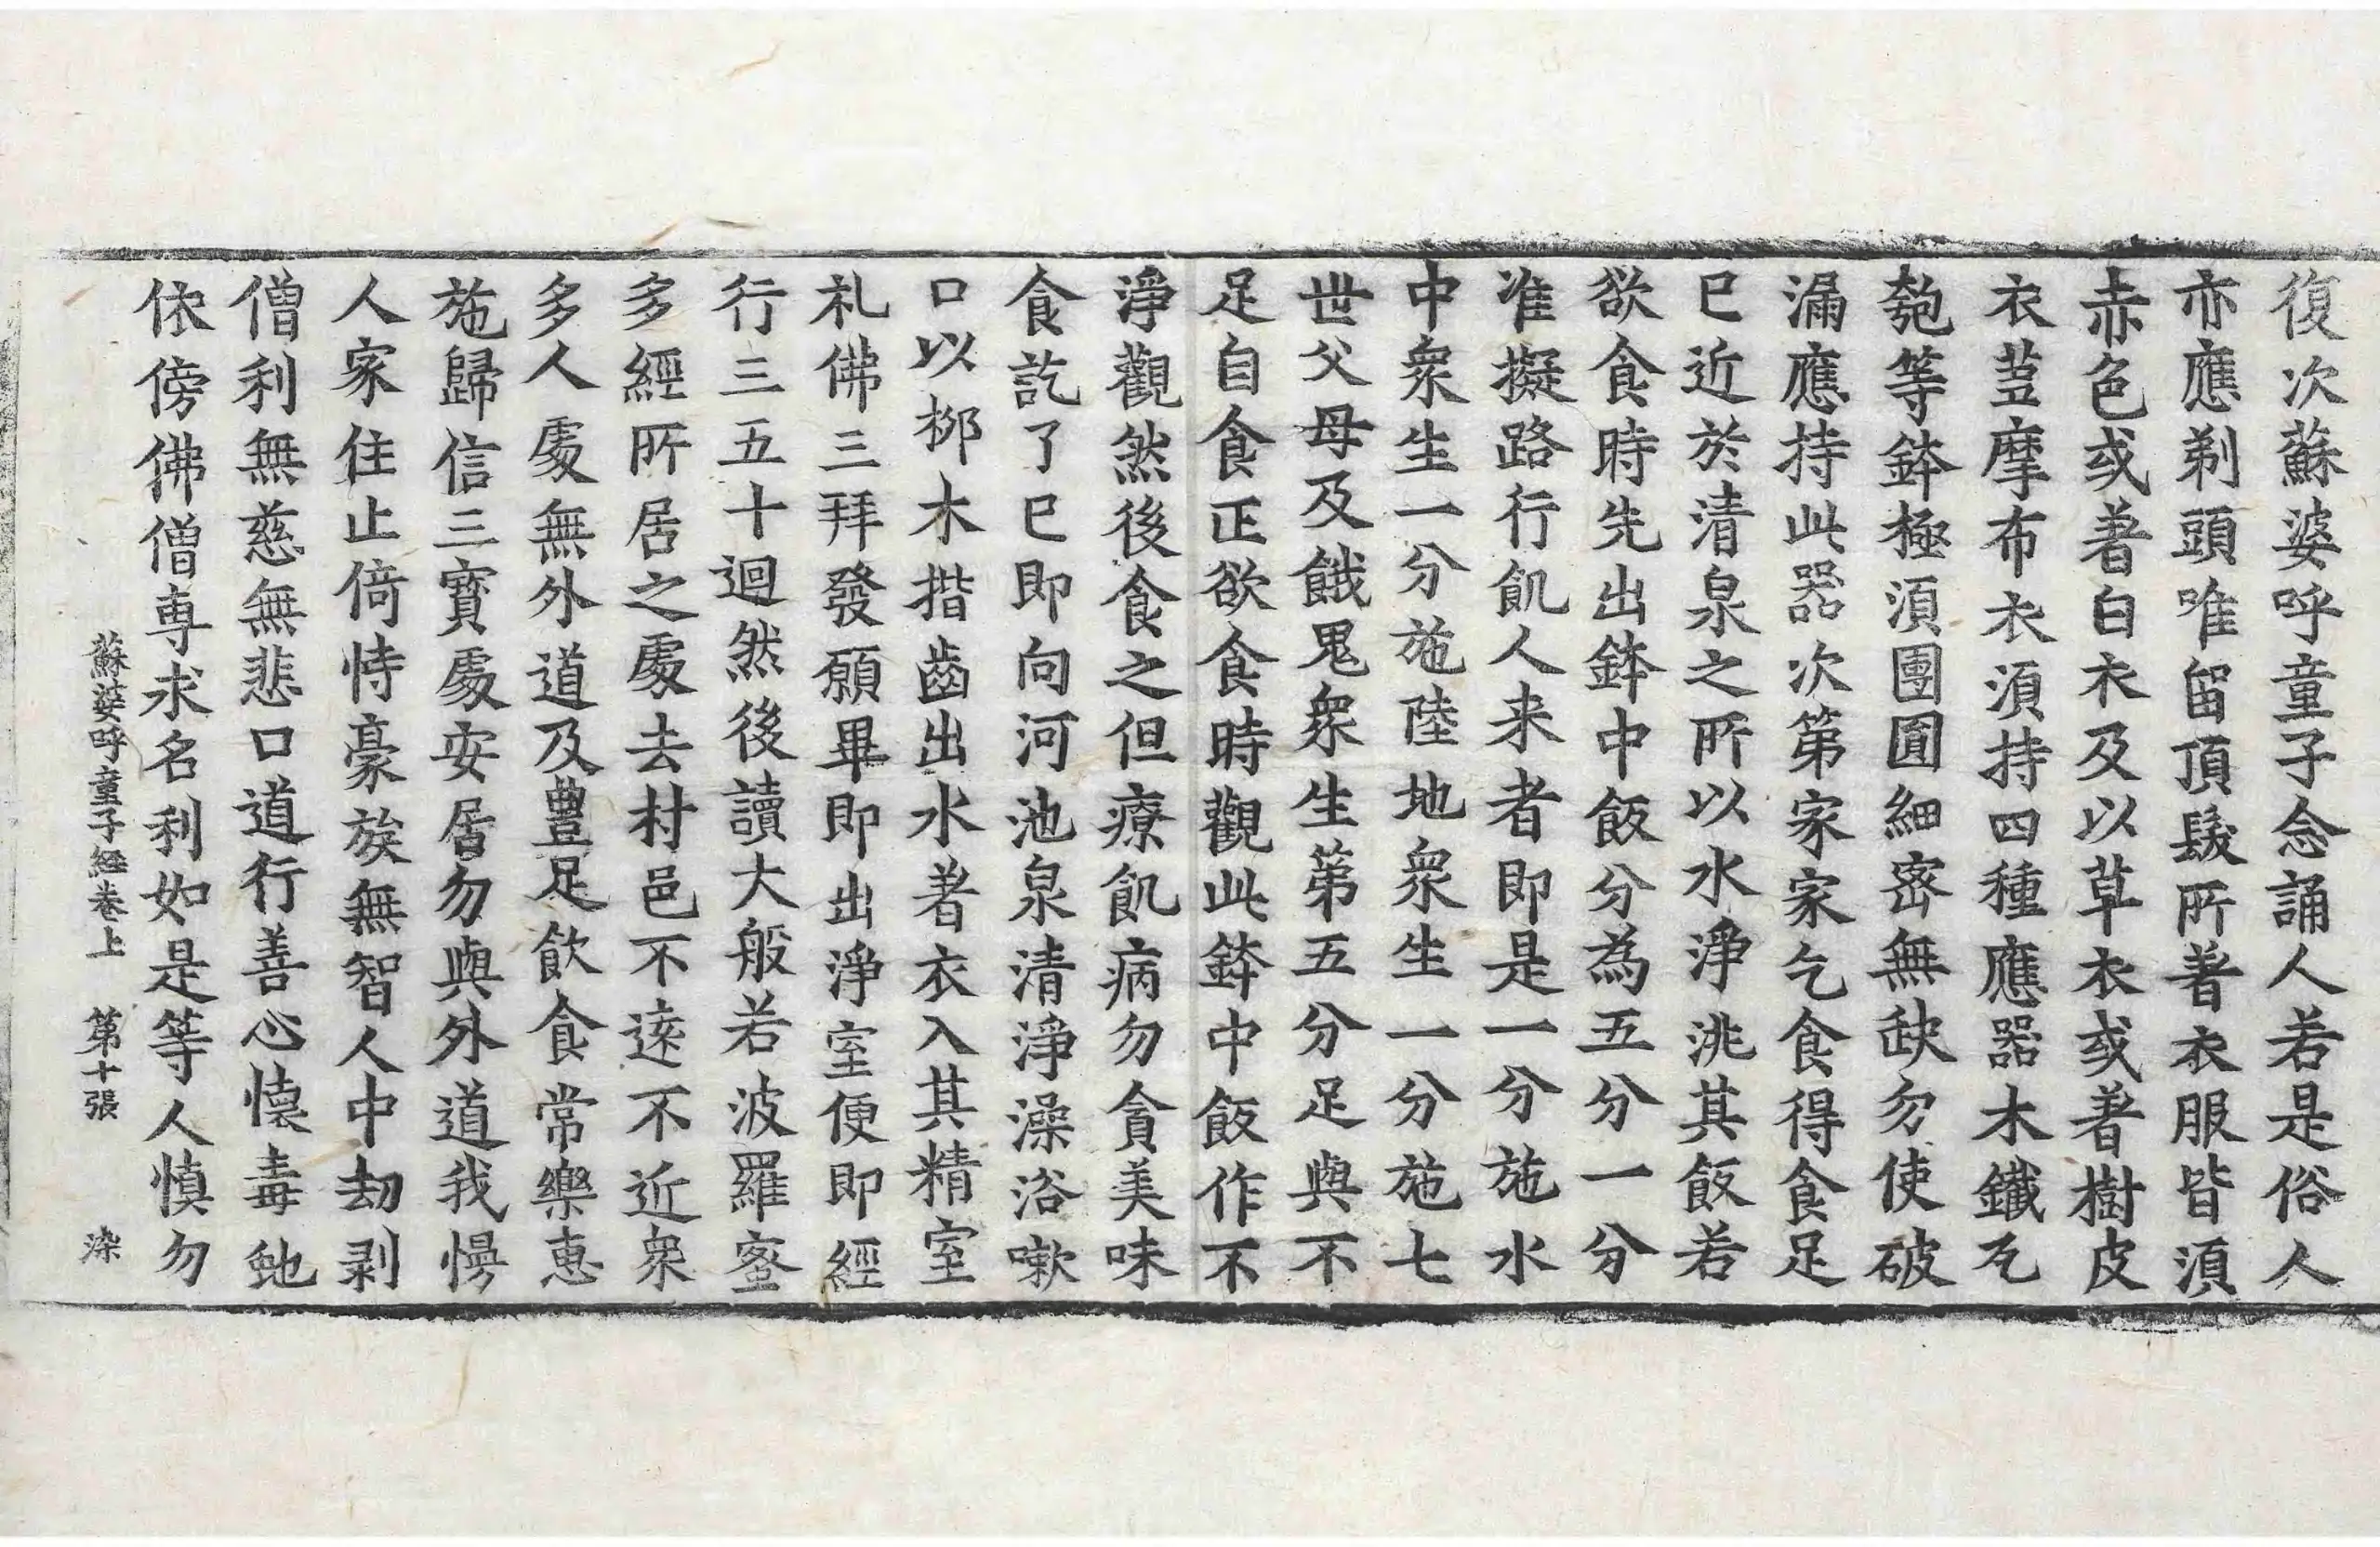 復次蘇婆呼童子念誦人若是俗人
亦應剃頭唯留頂髮所著衣服皆湏
赤色或著白衣及以草衣或著樹皮
衣荳摩布衣湏持四種應器木鐵瓦
匏等鉢極湏團圓細密無缺勿使破
漏應持此器次第家家乞食得食足
已近於清泉之所以水淨洮其飯若
欲食時先出鉢中飯分為五分一分
准擬路行飢人来者即是一分施水
中衆生一分施陸地衆生一分施七
世父母及餓鬼衆生第五分足與不
足自食正欲食時觀此鉢中飯作不
淨觀然後食之但療飢病勿貪美味
食訖了已即向河池泉清淨澡浴嗽
口以楊木揩齒出水著衣入其精室
礼佛三拜發願畢即出淨室便即經
行三五十迴然後讀大般若波羅蜜
多經所居之處去村邑不遠不近衆
多人處無外道及豊足飲食常樂恵
施歸信三寳處安居勿與外道我慢
人家住止倚恃豪族無智人中劫剥
僧利無慈無悲口道行善心懐毒虵
依傍佛僧専求名利如是等人慎勿
蘇婆呼童子經卷上 第十張 染